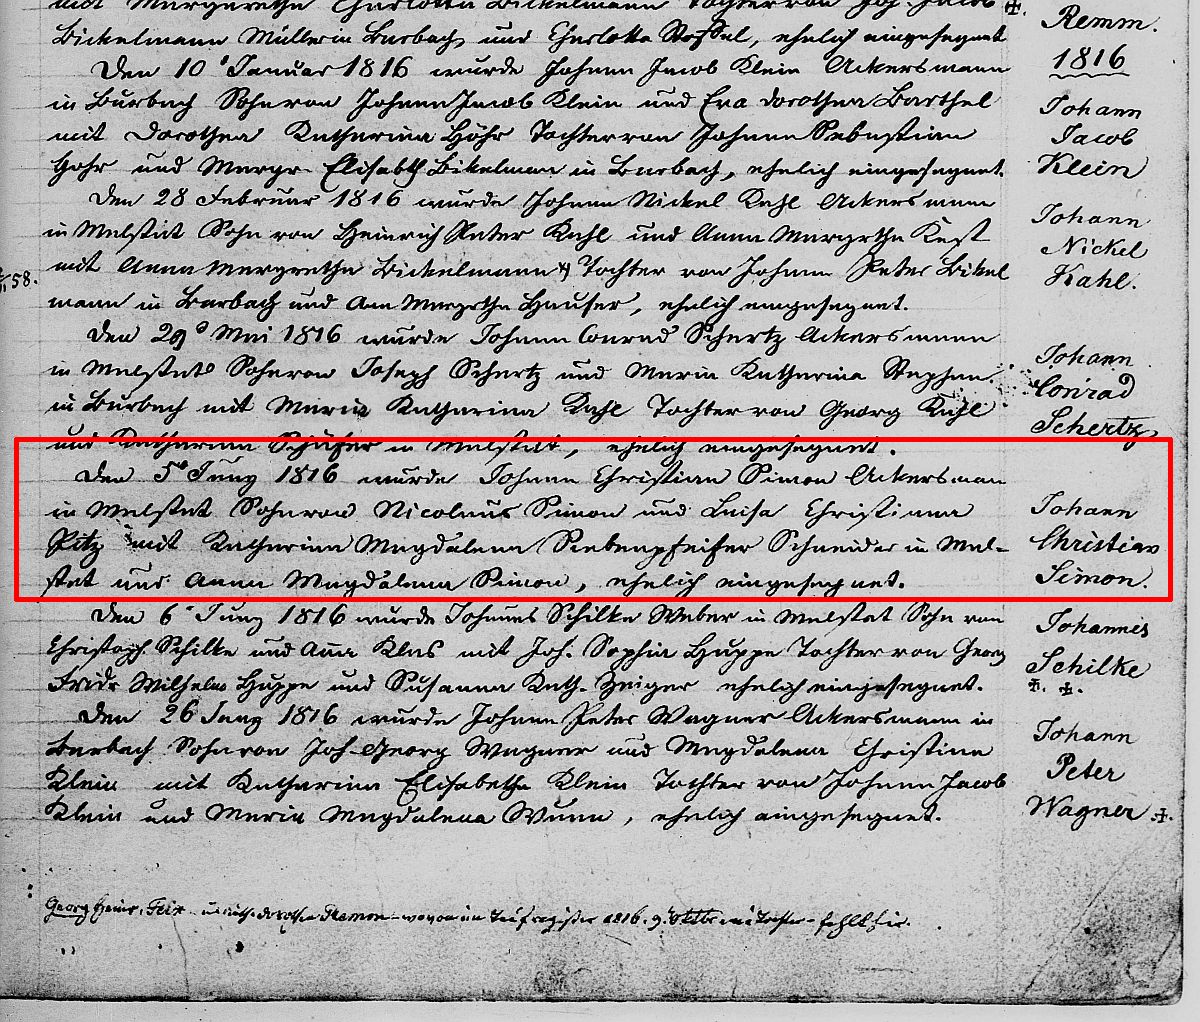 mit Margaretha Charlotta Bickelmann Tochter von Joh. Jacob
Bickelmann Müller in Burbach und Charlotta Rossel, ehelich eingesegnet
Remm.
1816
Den 10t Januar 1816 wurde Johann Jacob Klein Ackersmann
in Burbach Sohn von Johann Jacob Klein und Eva Dorothea Barthel
mit Dorothea Katharina Höhr Tochter von Johann Sebastian
Hohr und Margr. Elisabeth Bikelman in Burbach, ehelich eingesegnet.
Johann
Jacob
Klein
Den 28 Februar 1816 wurde Johann Nickel Kahl Ackersmann
in Malstat Sohn von Heinrich Peter Kahl und Anna Margretha Kest
mit Anna Margretha Bickelmann Tochter von Johann Peter Bikel
mann in Burbach und Ann Margretha Hauser, ehelich eingesegnet.
Johann
Nickel
Kahl.
58.
Den 29t Mai 1816 wurde Johann Conrad Schertz Ackersmann
in Malstat Sohn von Joseph Schertz und Maria Katharina Stephan
in Burbach mit Maria Katharina Kahl Tochter von Georg Kahl
und Katharina Schäfer in Malstat, ehelich eingesegnet.
Johann
Conrad
Schertz
Den 5t Juny 1816 wurde Johann Christian Simon Ackersman
in Malstat Sohn von Nicolaus Simon und Luisa Christiana
Pitz mit Katharina Magdalena Siebenpfeifer Schneider in Mal-
stat und Anna Magdalena Simon, ehelich eingesegnet.
Johann
Christian
Simon.
Den 6t Juny 1816 wurde Johannes Schilke Weber in Malstat Sohn von
Christoph Schilke und Anna Klas mit Joh. Sophia Huppe Tochter von Georg
Fridr Wilhelm Huppe und Susanna Kath. Zeiger ehelich eingesegnet.
Johannes
Schilke
Den 26 Juny 1816 wurde Johann Peter Wagner Ackersmann in
Burbach Sohn von Joh. Georg Wagner und Magdalena Christina
Klein mit Katharina Elisabetha Klein Tochter von Johann Jacob
Klein und Maria Magdalena Wunn, ehelich eingesegnet.
Johann
Peter
Wagner
Georg Heinr. Feix Dorothea Remon wovon im Taufregister 1816. 9. Oktbr eine Tochter - fehlt hier.